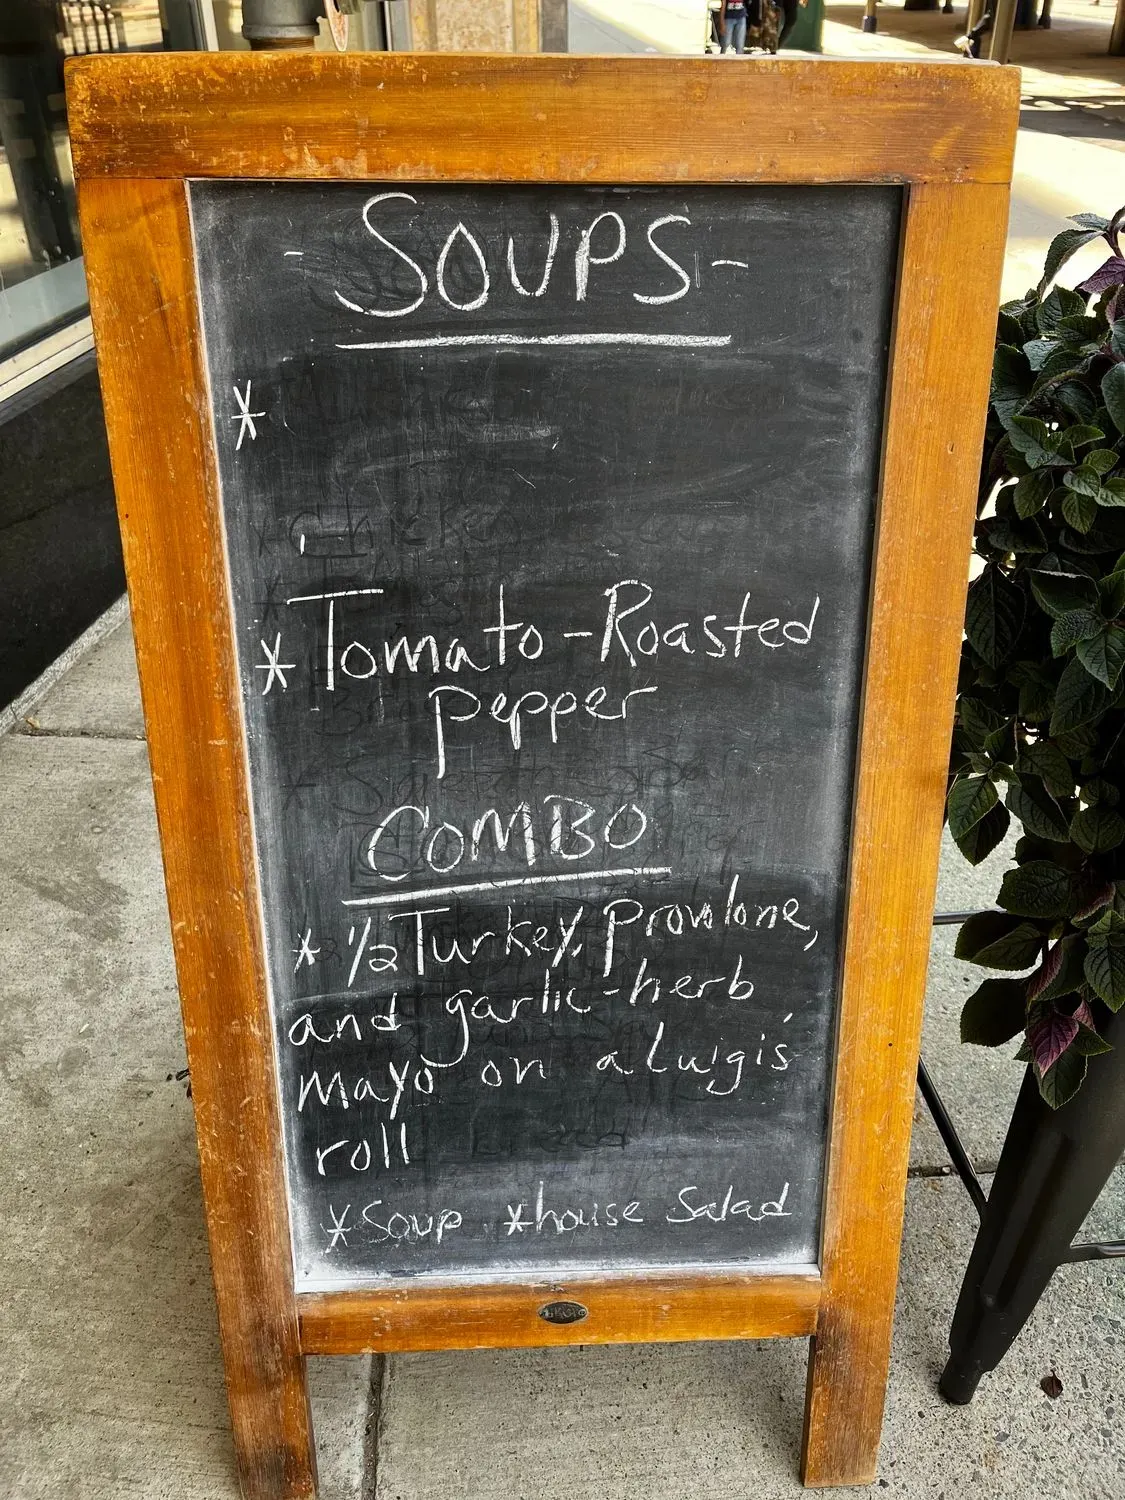 - SOUPS -
*
* Tomato - Roasted
pepper
COMBO
* 1/2 Turkey, provolone,
and garlic-herb
mayo on a Luigi's
roll
* Soup * house Salad